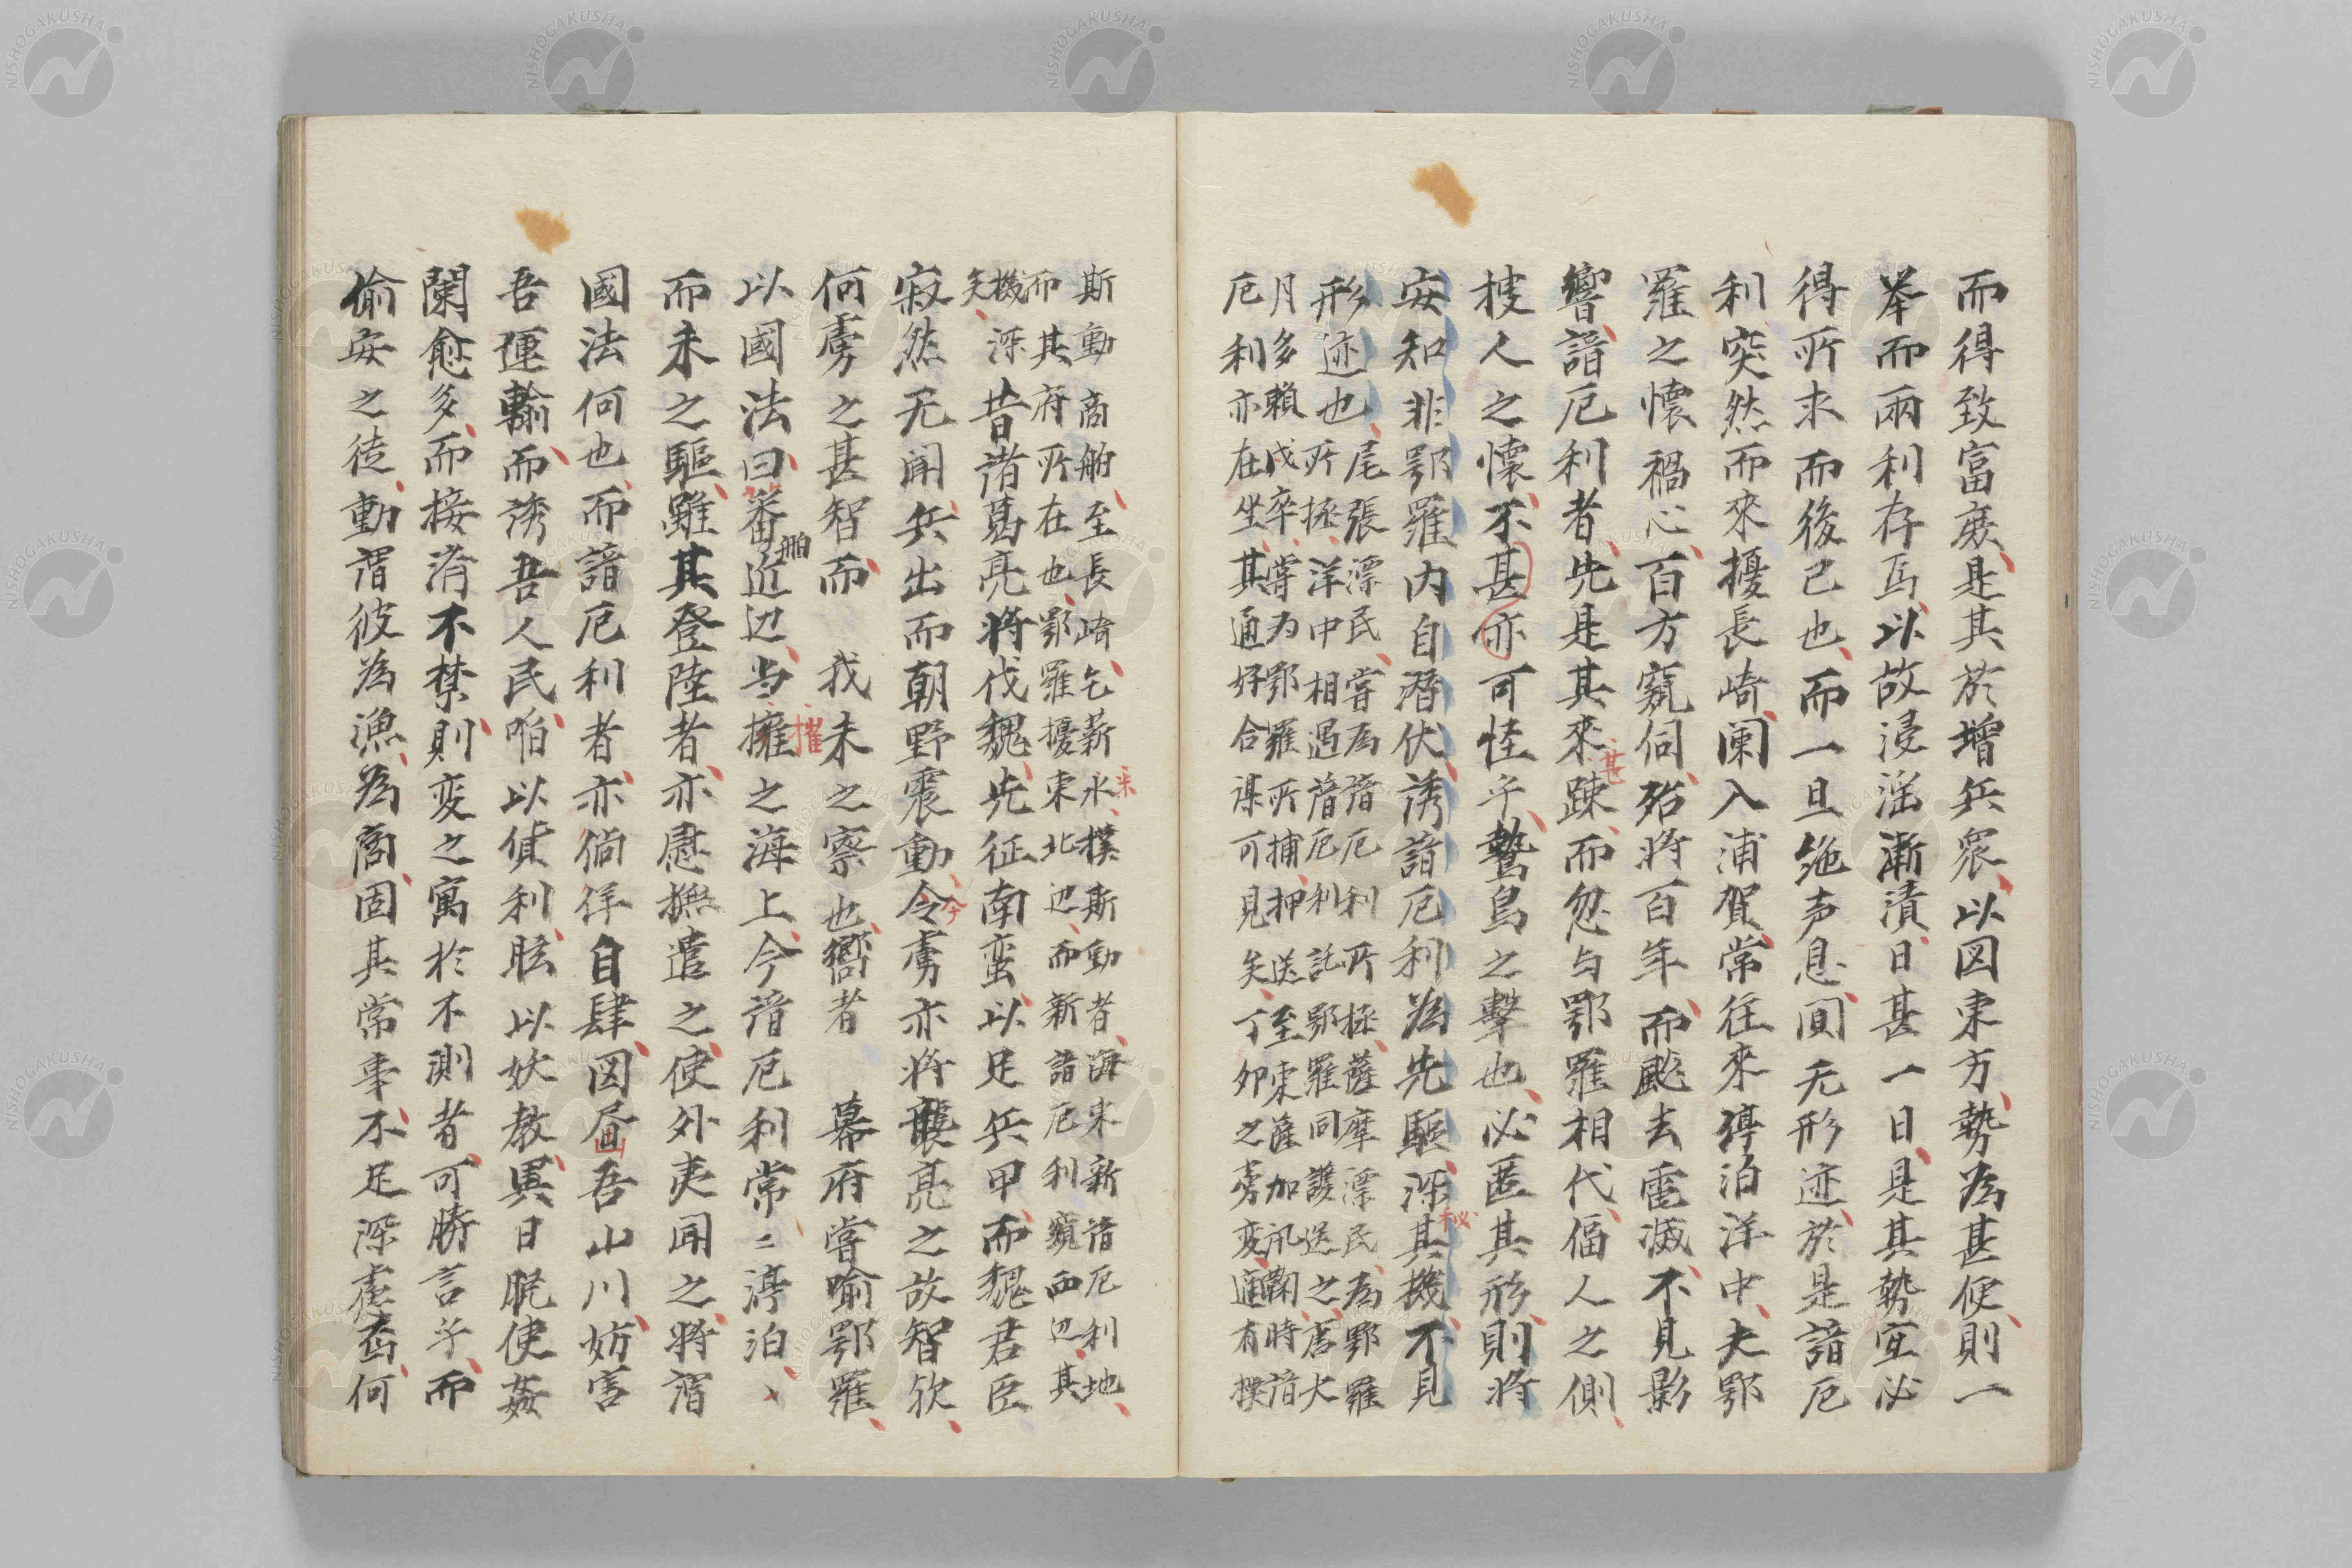 而得致富庶是其於增兵衆以図東方勢為甚便則一
挙而兩利存焉以故浸淫漸漬日甚一日是其勢宜必
得所求而後已也而一旦絶声息閴无形迹於是諳厄
利突然而來擾長崎闌入浦賀常往來停泊洋中夫鄂
羅之懐禍心百方窺伺殆将百年而飈去雷滅不見影
響諳厄利者先是其來甚踈而忽与鄂羅相代偪人之側
捜人之懐不甚亦可怪乎鷙鳥之擊也必匿其形則将
安知非鄂羅内自潜伏誘諳厄利為先駆深秘其機不見
形迹也
尾張漂民嘗為諳厄利所拯薩摩漂民為鄂羅
所拯洋中相遇諳厄利託鄂羅同護送之唐太
月多賴戊卒嘗为鄂羅所捕押送至東薩加汛鞫時諳
厄利亦在坐其通好合謀可見矣丁卯之虜変適有撲
斯動商舶至長崎乞薪水米撲斯動者海東新諳厄利地
而其府所在也鄂羅擾東北辺而新諳厄利窺西辺其
機深
矣
昔諸葛亮将伐魏先征南蛮以足兵甲而魏君臣
寂然无聞兵出而朝野震動今令虜亦将襲亮之故智欤
何虜之甚智而 我未之察也嚮者 幕府嘗喻鄂羅
以國法曰番舶近辺与擁摧之海上今諳厄利常二渟泊
而未之駆雖其登陸者亦慰撫遣之使外夷聞之将謂
國法何也而諳厄利者亦徜徉自肆図畫吾山川妨害
吾運輸而誘吾人民啗以貨利眩以妖教異日脱使姦
闌愈多而接済不禁則変之寓於不測者可勝言乎而
偷安之徒動謂彼為漁為商固其常事不足深慮噫何